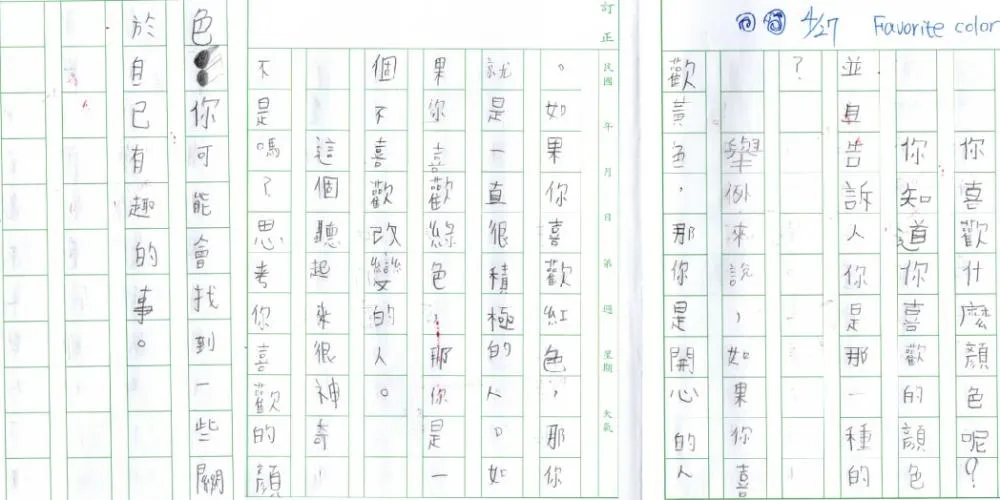 4/27 Favorite color
你喜歡什麼顏色呢?
你知道你喜歡的顏色
並且告訴人你是那一種的
?
舉例來說，如果你喜
歡黃色，那你是開心的人
訂正
民國 年 月 日 第 週 星期 天氣
。如果你喜歡紅色，那你
就是一直很積極的人。如
果你喜歡綠色，那你是一
個不喜歡改變的人。
這個聽起來很神奇
不是嗎?思考你喜歡的顏
色你可能會找到一些關
於自已有趣的事。